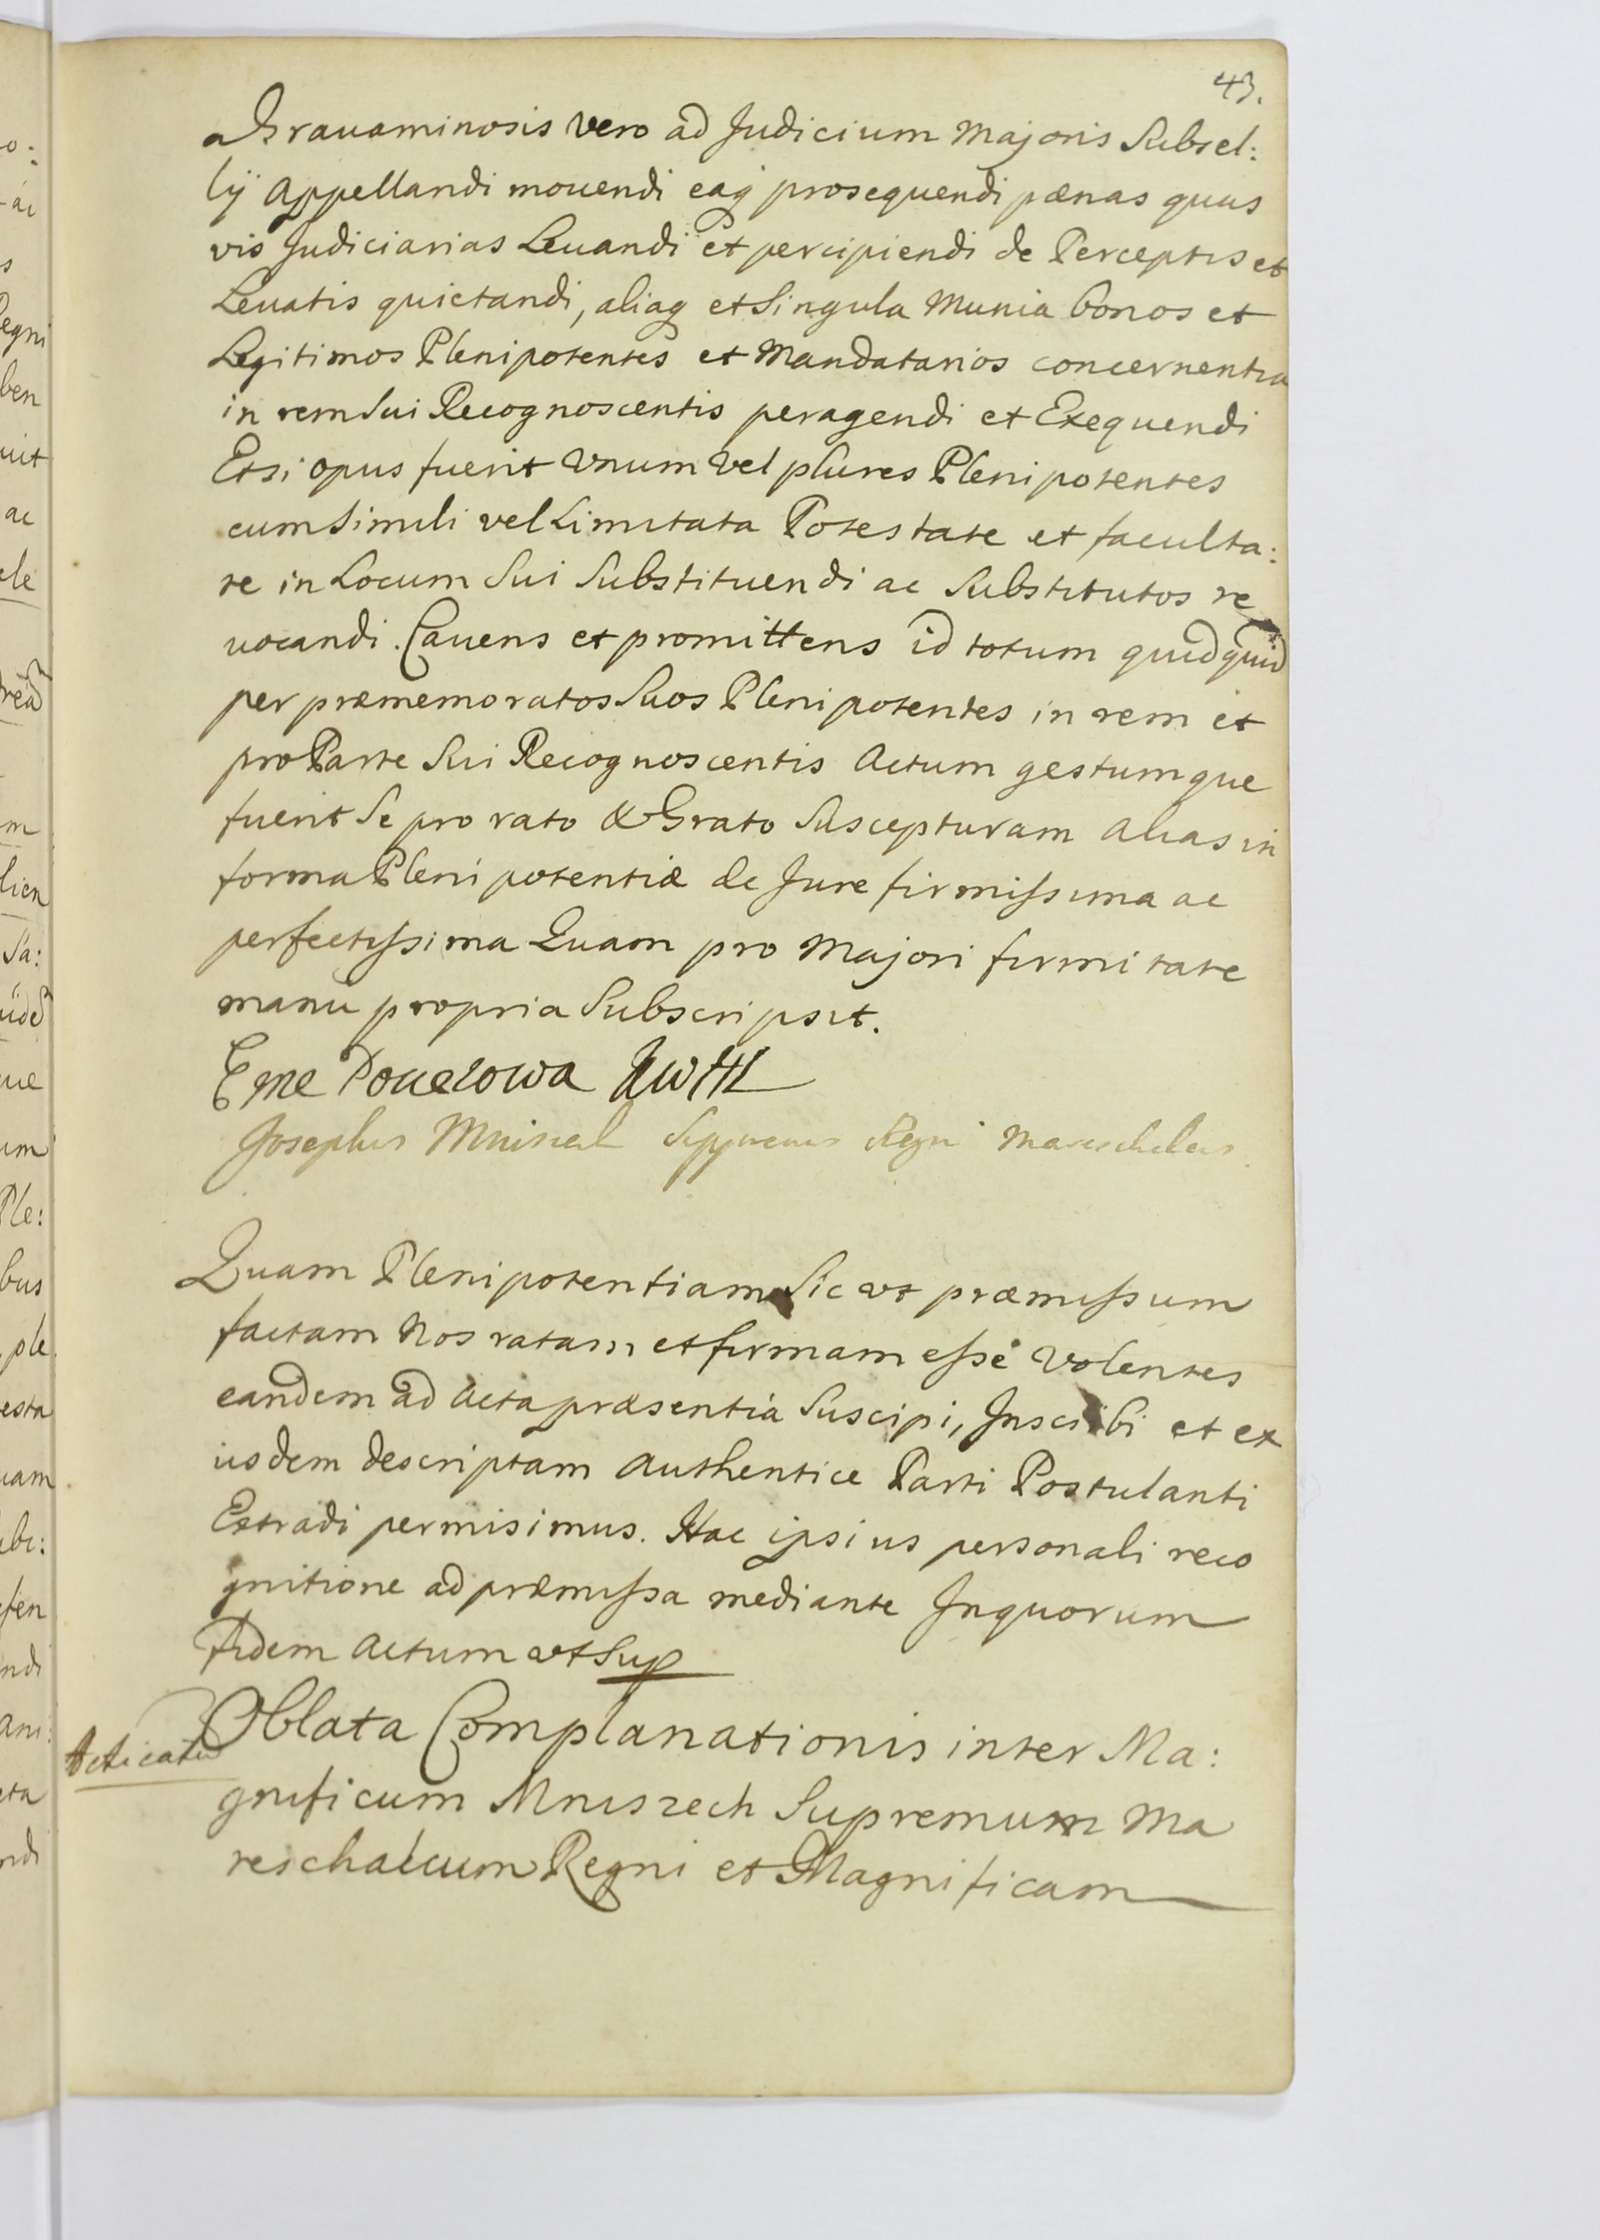 43.
a Gravaminosis vero ad Judicium Majoris Subsel:
lÿ Appellandi mouendi eaq prosequendi pœnas quas
vis Judiciarias Leuandi et percipiendi de Perceptis et
Leuatis quietandi, aliaq et Singula Munia bonos et
Legitimos Plenipotentes et Mandatarios concernentia
in rem Sui Recognoscentis peragendi et Exequendi
Et si opus fuerit Vnum Vel plures Plenipotentes
cum Simili vel Limitata Potestate et faculta:
te in Locum Sui Substituendi ac Substitutos re
uocandi. Cauens et promittens id totum quidquid
per præmemoratos Suos Plenipotentes in rem et
pro Parte Sui Recognoscentis Actum gestumque
fuerit Se pro rato & Grato Suscepturam alias in
forma Plenipotentiæ de Jure firmissima ac
perfectissima Quam pro Majori firmitate
manu propria Subscripsit.
Josephus Mniszech Supremus Regni Mareschalcus
Quam Plenipotentiam Sic vt præmissum
factam Nos ratam et firmam esse Volentes
eandem ad Acta præsentia Suscipi, Inscribi et ex
iisdem descriptam Authentice Parti Postulanti
Extradi permisimus. Hac ipsius personali reco
gnitione ad præmissa mediante Inquorum
fidem Actum vt Sup
Oblata Complanationis inter Ma:
Acticatu
gnificum Mniszech Supremum Ma
reschalcum Regni et Magnificam